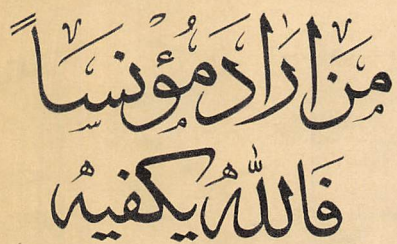 مَنْ اَرَادَ مُؤْنِسًا
فَاللهُ يَكْفيهُ